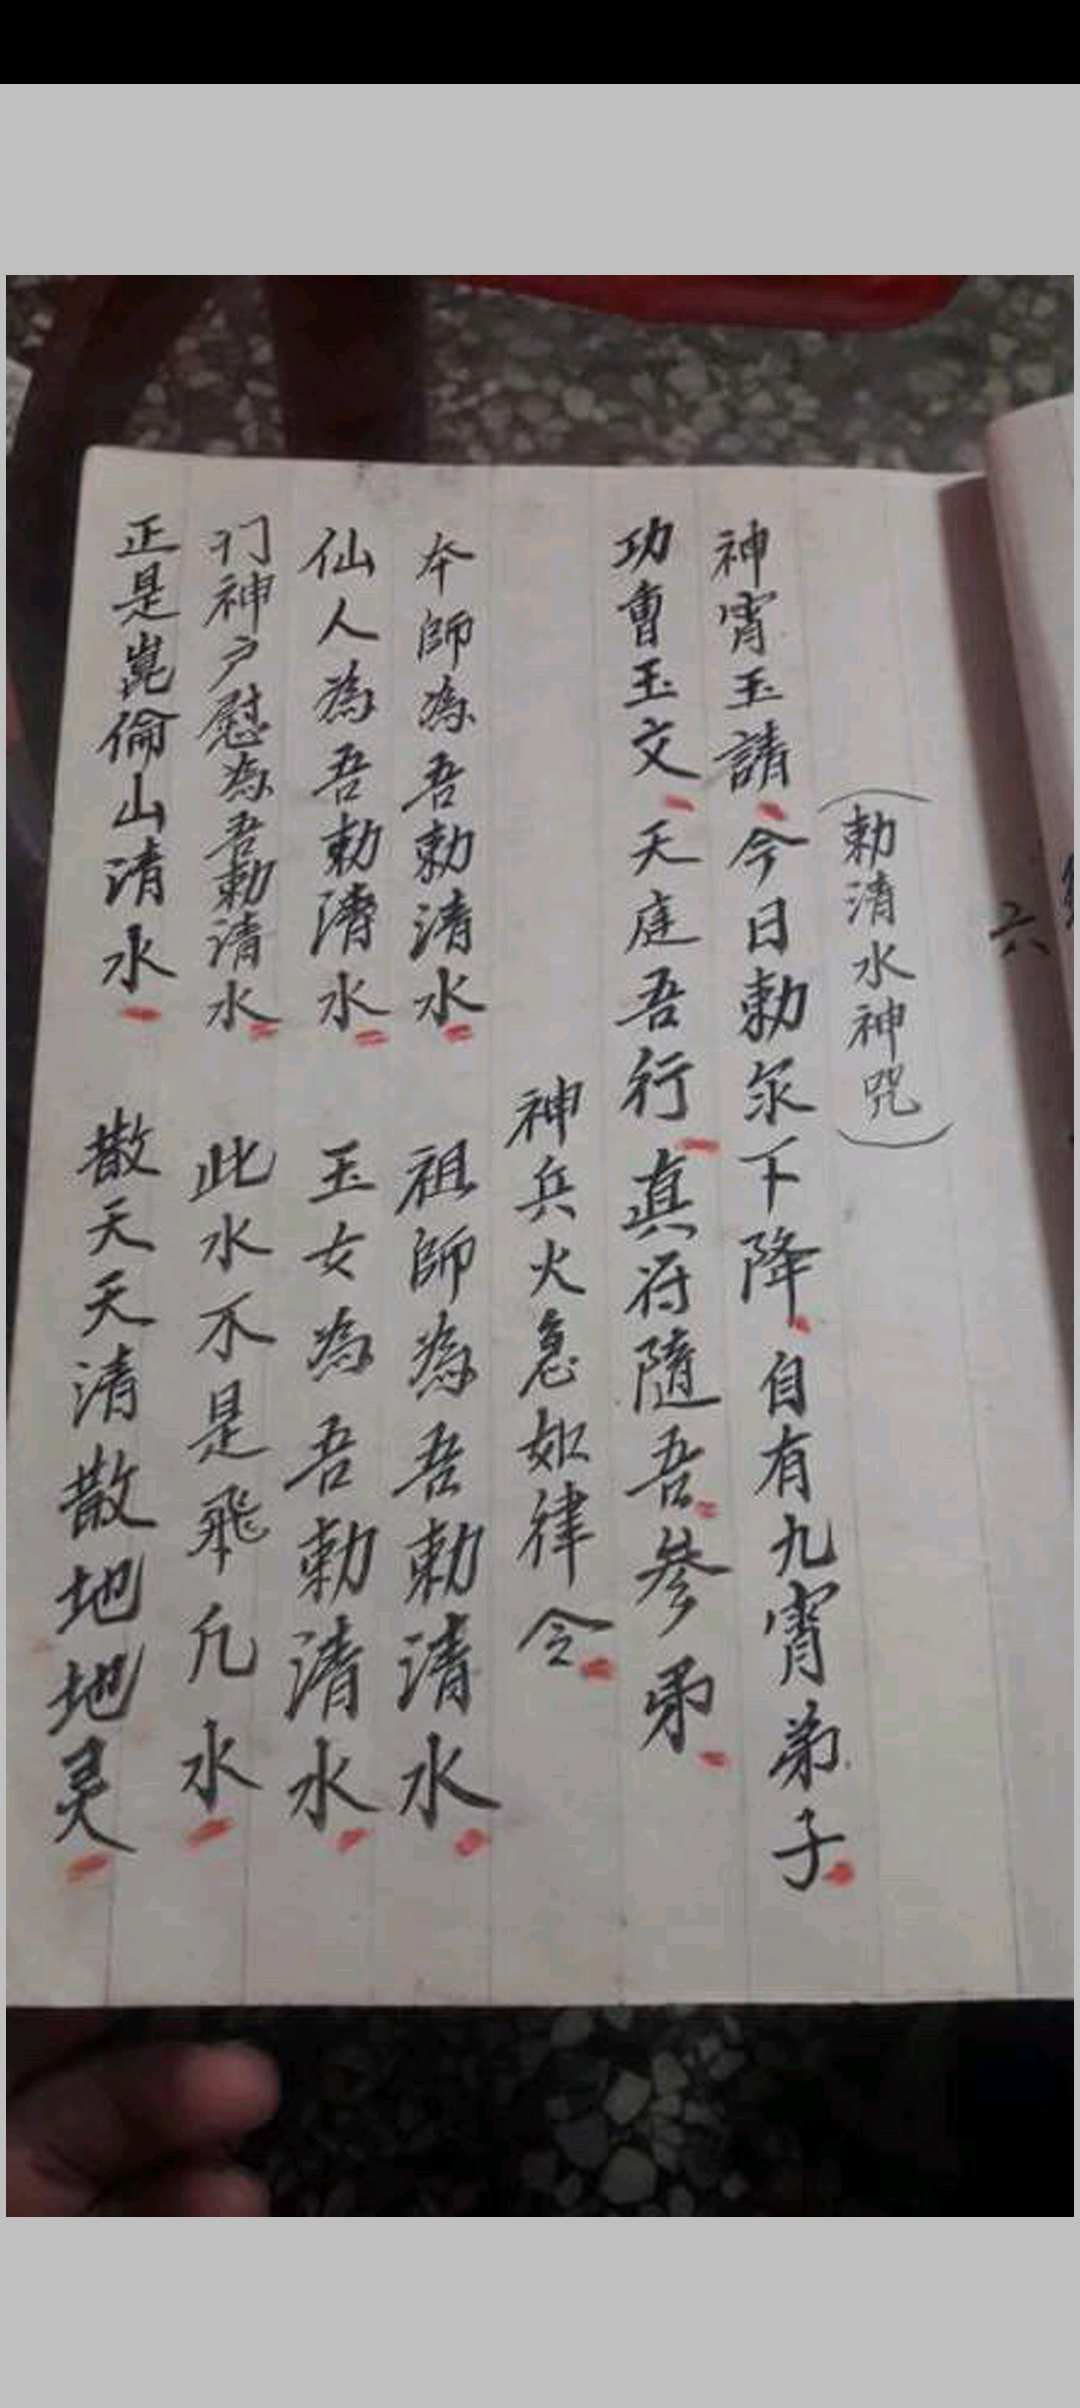 六
(勅清水神咒)
神霄玉請今日勅尔下降自有九霄弟子
功曹玉文天庭吾行真符隨吾參弟
神兵火急如律令
本師為吾勅清水 祖師為吾勅清水
仙人為吾勅清水 玉女為吾勅清水
门神户慰為吾勅清水 此水不是飛凡水
正是崑倫山清水 散天天清散地地灵